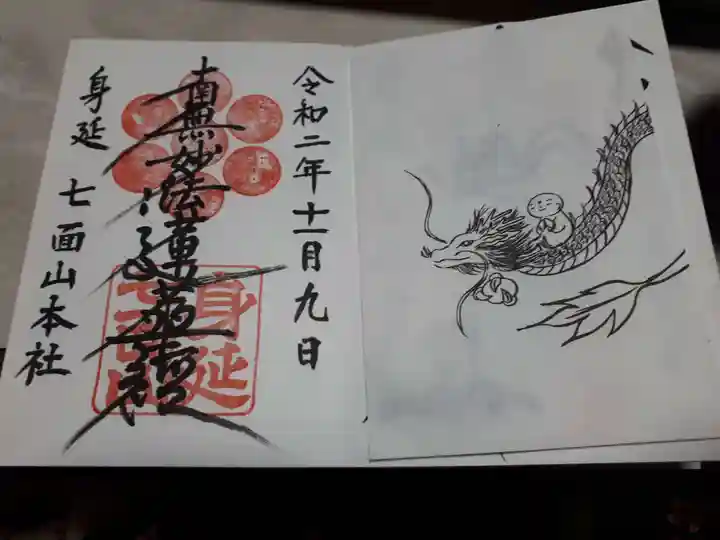 令和二年十一月九日
南無妙法蓮華経
身延
七面山本社
身延
七面山